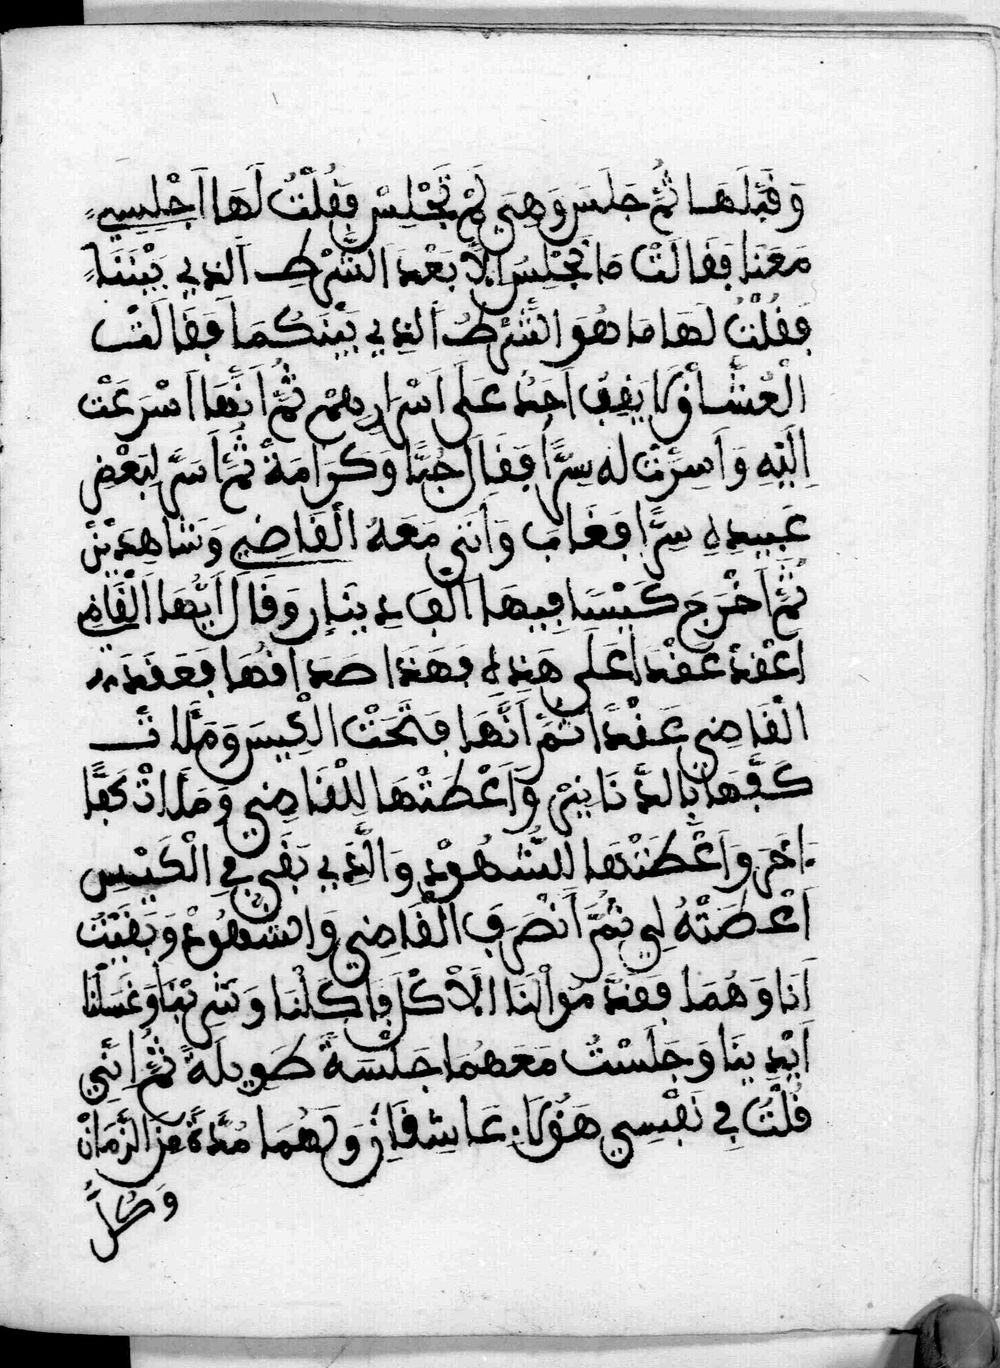 وَقَبَّلَهَا ثُمَّ جَلَسَ وَهِيَ لَمْ تَجْلِسْ فَقُلْتُ لَهَا اَجْلِسِي
مَعَنَا فَقَالَتْ مَا نَجْلِسُ اِلَّا بَعْدَ الشَّرْطِ اَلذِي بَيْنَنَا
فَقُلْتُ لَهَا مَا هُوَ الشَّرْطُ اَلذِي بَيْنَكُمَا فَقَالَتْ
الْعُشَّاقُ لَا يَقِفُ اَحَدٌ عَلَى اَسْرَارِهِمْ ثُمَّ اَنَّهَا اَسْرَعَتْ
اِلَيْهِ وَاَسَرَّتْ لَهُ سِرًّا فَقَالَ حُبًّا وَكَرَامَةً ثُمَّ اَسَرَّ لِبَعْضِ
عَبِيدِهِ سِرًّا فَغَابَ وَأَتَى مَعَهُ الْقَاضِي وَشَاهِدَيْنِ
ثُمَّ اَخْرَجَ كَيْسًا فِيهَا اَلْفَ دِينَارٍ وَقَالَ اَيُّهَا اَلْقَاضِي
اَعْقِدْ عَقْدًا عَلَى هَذِهِ فَهَذَا صَدَاقُهَا فَعَقَدَ
الْقَاضِي عَقْدًا ثُمَّ اَنَّهَا فَتَحَتْ الْكِيسَ وَمَلَاتْ
كَفَّهَا بِالدَّنَانِيرِ وَاَعْطَتْهَا لِلْقَاضِي وَمَلَاتْ كَفًّا
اَخَرَ وَاَعْطَتْهَا لِلشُّهُودِ وَالَّذِي بَقِيَ فِي الْكَيْسِ
اَعْطَتْهُ لِي ثُمَّ اَنْصَرَفَ الْقَاضِي وَالشُّهُودُ وَبَقَيْتُ
اَنَا وَهُمَا فَقَدَّمُوا لَنَا الْاَكْلَ فَاَكَلْنَا وَشَرِبْنَا وَغَسَلْنَا
اَيْدِينَا وَجَلَسْتُ مَعَهُمَا جَلْسَةً طَوِيلَةً ثُمَّ اِنَّنِي
قُلْتُ فِي نَفْسِي هَؤُلَاءِ عَاشِقَانِ وَلَهُمَا مُدَّةً مِنَ الزَّمَانْ
وَكُلُّ